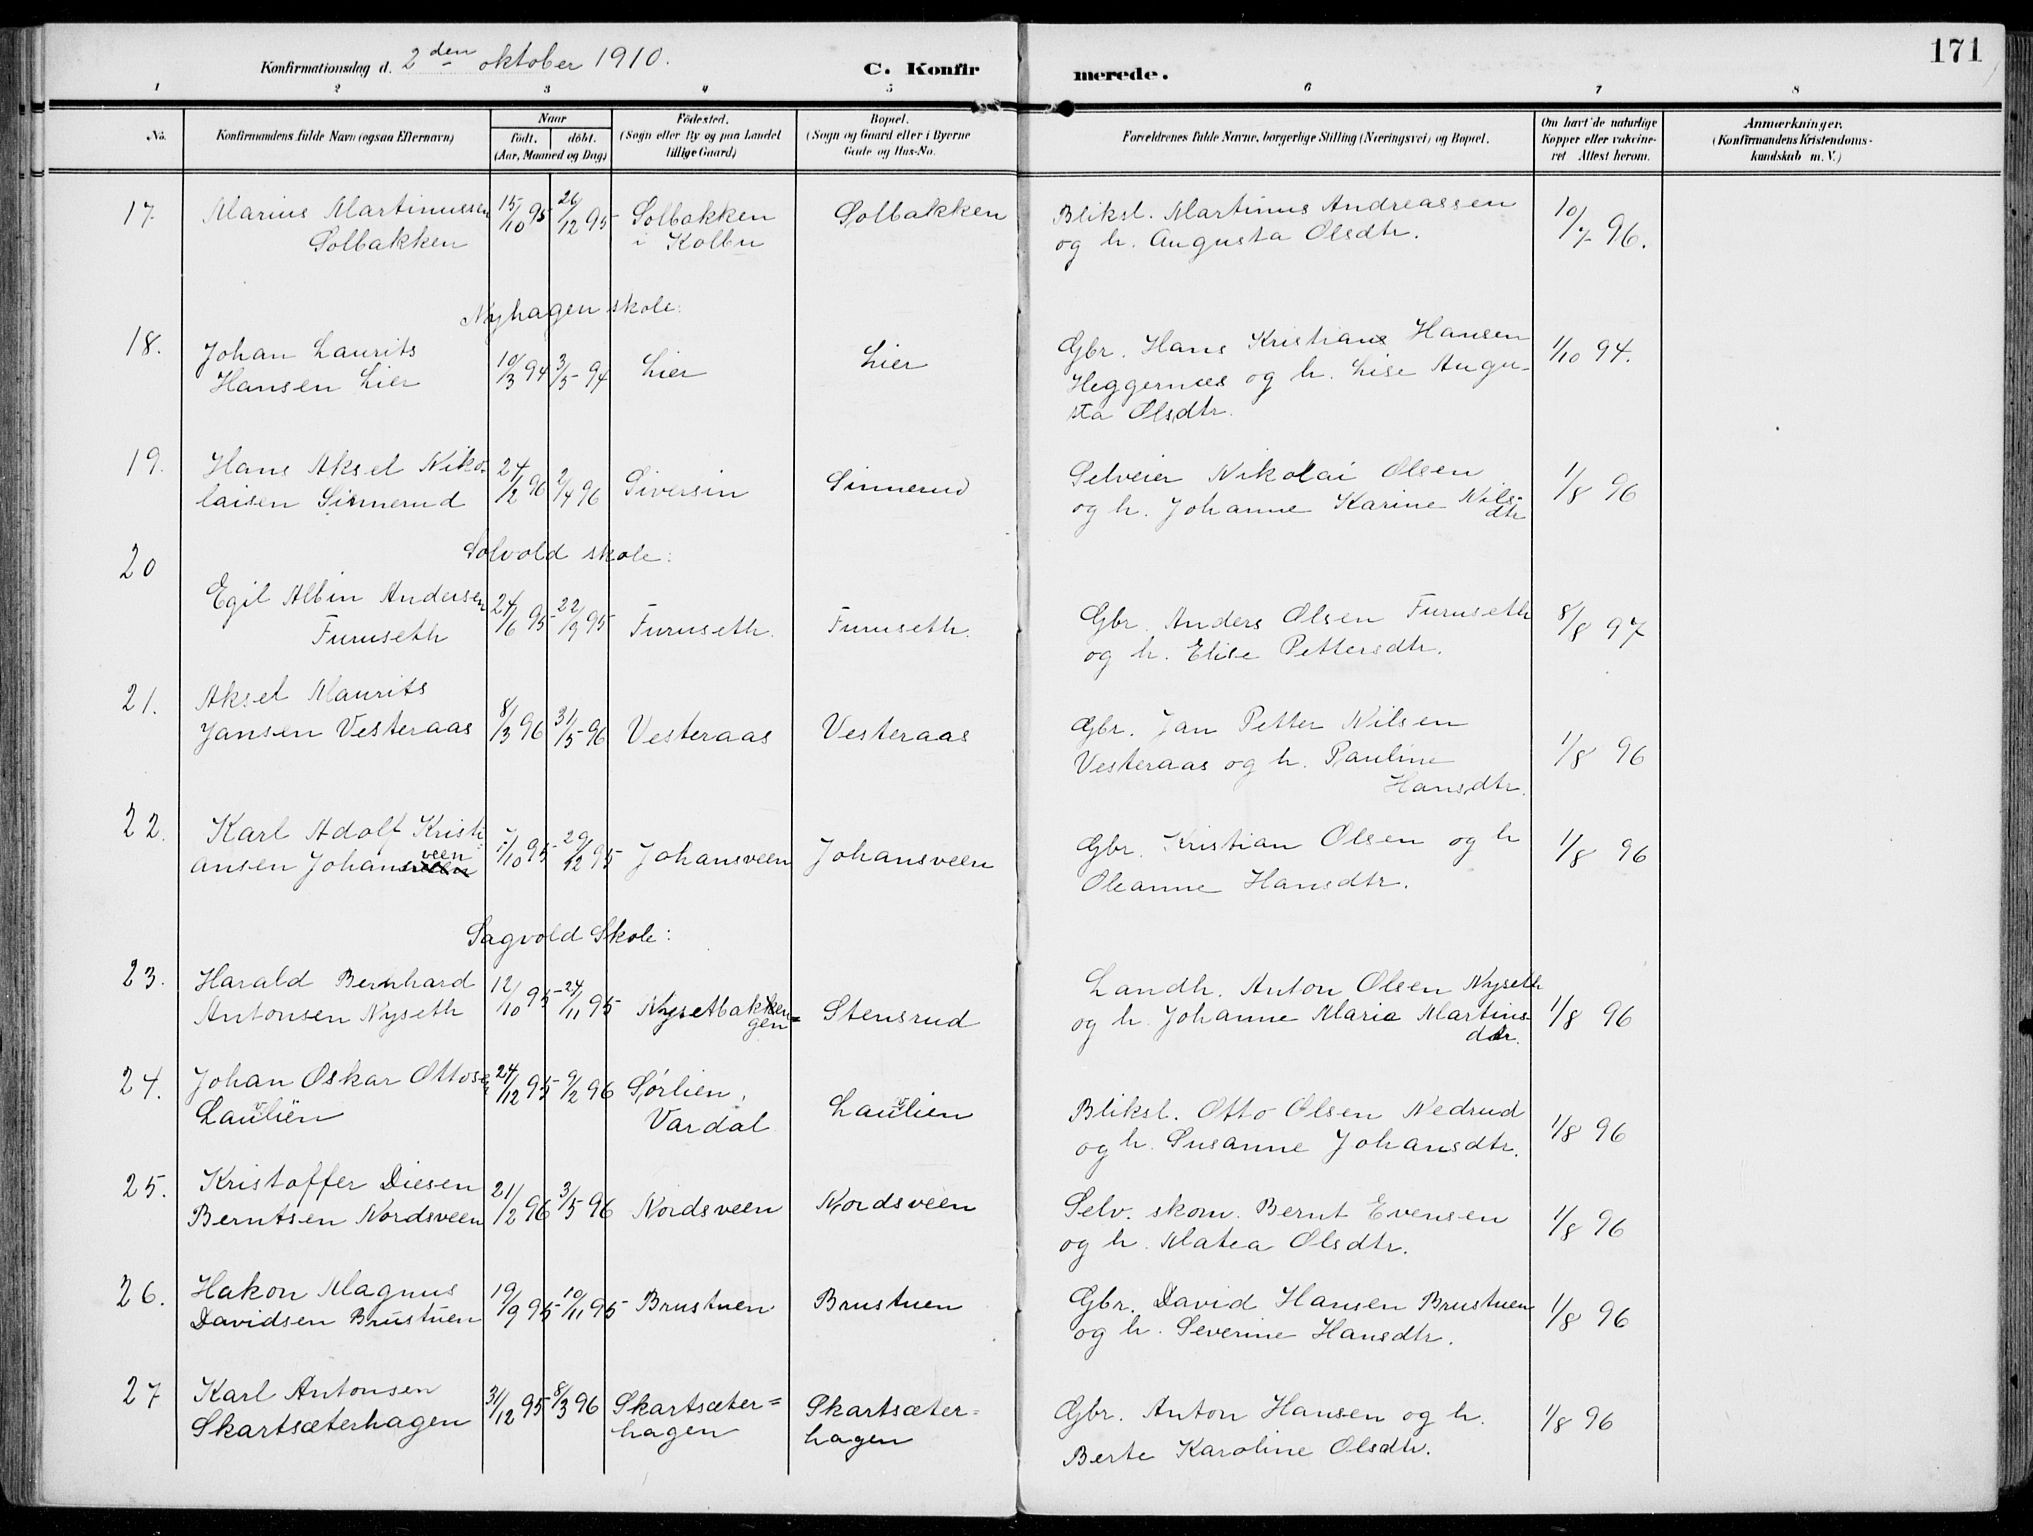 171
Konfirmationsdag d. 2den oktober 1910.
C. Konfirmerede.
1 2 3 4 5 6 7 8
No.
Konfirmandens fulde Navn (ogsaa Efternavn)
Naar
født. døbt.
(Aar, Maaned og Dag)
Fødested.
(Sogn eller By og paa Landet
tillige Gaard)
Bopæl.
(Sogn og Gaard eller i Byerne
Gade og Hus-No.
Forældrenes fulde Navne, borgerlige Stilling (Næringsvei) og Bopæl.
Om havt de naturlige
Kopper eller vakcine-
ret Attest herom.
Anmærkninger.
(Konfirmandens Kristendoms-
kundskab m. V.)
17 Marius Martinussen 15/10 95 26/12 95 Solbakken Solbakken Bliksl. Martinus Andreassen 10/7 96.
Solbakken i Kolbu og h. Augusta Olsdtr.
Nyhagen skole:
18. Johan Laurits 10/3 94 3/5 94 Lier Lier Gbr. Hans Kristians Hansen 1/10 94.
Hansen Lier Heggernæs og h. Lise Augu-
sta Olsdtr.
19. Hans Aksel Niko- 24/2 96 2/4 96 Siversin Sinnerud Selveier Nikolai Olsen 1/8 96
laisen Sinnerud og h. Johanne Karine Nils-
dtr
Solvold skole:
20 Egil Albin Andersen 24/6 95 22/9 95 Furuseth. Furuseth. Gbr. Anders Olsen Furuseth 8/8 97
Furuseth og h. Elise Pettersdtr.
21. Aksel Maurits 8/3 96 31/5 96 Vesteraas Vesteraas Gbr. Jan Petter Nilsen 1/8 96
Jansen Vesteraas Vesteraas og h. Pauline
Hansdtr.
22. Karl Adolf Kristi- /10 95 29/12 95 Johansveen Johansveen Gbr. Kristian Olsen og h 1/8 96
ansen Johansveen Oleanne Hansdtr.
Sagvold Skole:
23. Harald Bernhard 12/10 95 24/11 95 Nysetbakken= Stensrud Landh. Anton Olsen Nyseth 1/8 96
Antonsen Nyseth gen og h. Johanne Marie Martins-
dtr.
24. Johan Oskar Ottosen 24/12 95 9/2 96 Sørlien, Laulien Bliksl. Otto Olsen Nedrud 1/8 96
Laulien Vardal og h. Susanne Johansdtr.
25. Kristoffer Diesen 21/2 96 3/5 96 Nordsveen Nordsveen Selv. skom. Bernt Evensen 1/8 96
Berntsen Nordsveen og h. Matea Olsdtr.
26. Hakon Magnus 19/9 95 10/11 95 Brustuen Brustuen Gbr. David Hansen Brustuen 1/8 96
Davidsen Brustuen og h. Severine Hansdtr.
27 Karl Antonsen 31/12 95 8/3 96 Skartsæter= Skartsæter- Gbr. Anton Hansen og h. 1/8 96
Skartsæterhagen hagen hagen Berte Karoline Olsdtr.